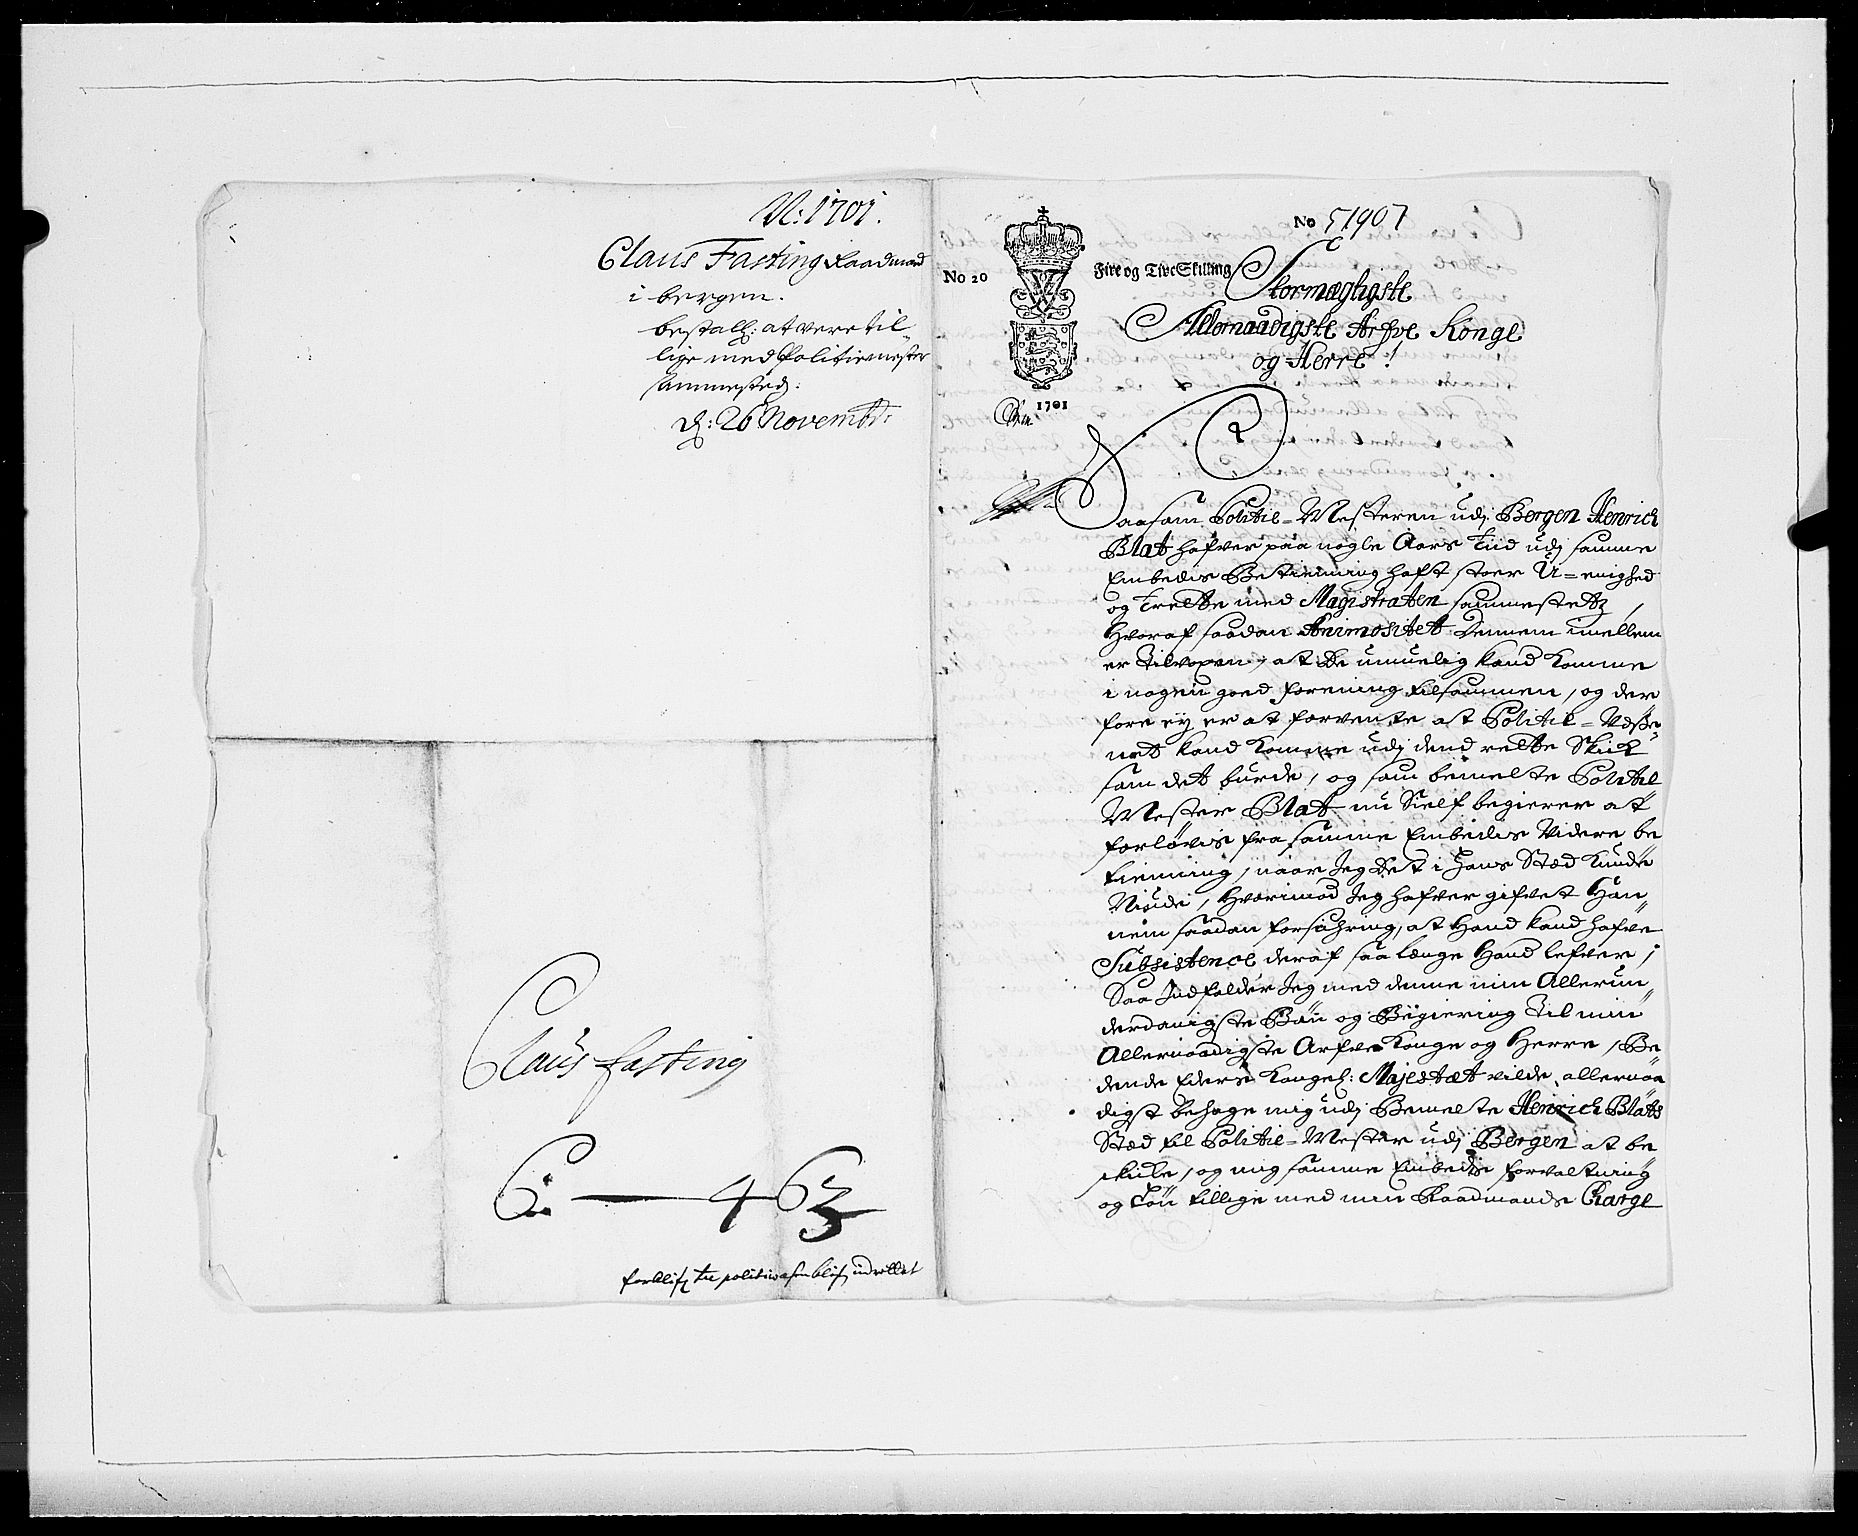 N: 1701.
Claus Fasting Raadmand
i bergen.
bestall: at vere til
lige med Politiemester
sammested:
d: 26 Novembr:
Claus fasting
C: — 463
forblifr
No 51907
No 20
Fire og Tive Skilling
1701
Stormægtigste
Allernaadigste Arfve Konge
og Herre!
Saasom Politie-Mesteren udj Bergen Henrich
Blat hafver paa nogle Aars Tiid udj samme
Embedis Betienning haft stoer U-enighed
og Trette med Magistraten sammestetz,
Hvoraf saadan Animositet Dennem imellem
er Tilvoxen, at De umuelig kand komme
i nogen goed forening tilsammen, og der
fore ey er at forvente at Politie-Væße,,
net kand komme udj dend rette Skick
som det burde, og som bemelte Politie
Mester Blat nu Sielf begierer at
forløvis fra samme Embedis Videre be
tienning, naar Jeg Det i Hans Stæd kunde
Niude, Hvorimod Jeg hafver gifvet Han,,
nem saadan forsichring, at Hand kand hafve
Subsistence deraf saa længe Hand lefver,
Saa Indfalder Jeg med denne min Allerun,,
derdanigste Bøn og Begiering Til min
Allernaadigste Arfve Konge og Herre, Be
dende Eders Kongel: Majestæt vilde allernaa
digst behage mig udj Bemelte Henrich Blats
Stæd til Politie-Mester udj Bergen at be
skicke, og mig samme Embedis forvaltning
og Løn tillige med min Raadmands Charge